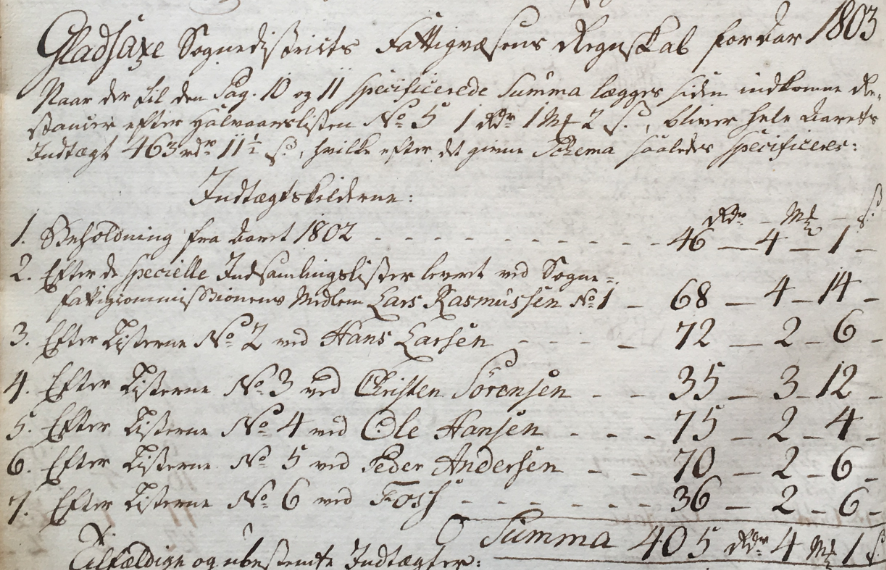 Gladsaxe Sognedistricts Fattigvæsens Regnskab for Aar 1803
Naar der til den Pag. 10 og 11 specificerede Summa lægges siden indkomne Re-
stancer efter halvaarslisten No 5 1 Rdr 1 Mk 2 s., bliver hele Aarets
Indtægt 463 rdr 11½ s., hvilke efter det givne Schema saaledes specificeres:
Indtægtskilderne:
Rdr - Mk - s.
1. Beholdning fra Aaret 1802 - - - - - - - - - - 46 - 4 - 1 -
2. Efter de specielle Indsamlingslister leveret ved Sogne-
fattigcommissionens Medlem Lars Rasmussen No 1 - 68 - 4 - 14 -
3. Efter Listerne No 2 ved Hans Larsen - - - - 72 - 2 - 6 -
4. Efter Listerne No 3 ved Christen Sörensen - - 35 - 3 - 12 -
5. Efter Listerne No 4 ved Ole Hansen - - - - 75 - 2 - 4 -
6. Efter Listerne No 5 ved Peder Andersen - - 70 - 2 - 6 -
7. Efter Listerne No 6 ved Foss - - - - - 36 - 2 - 6 -
Summa 405 Rdr 4 Mk 1 s.
Tilfældige og ubestemte Indtægter: